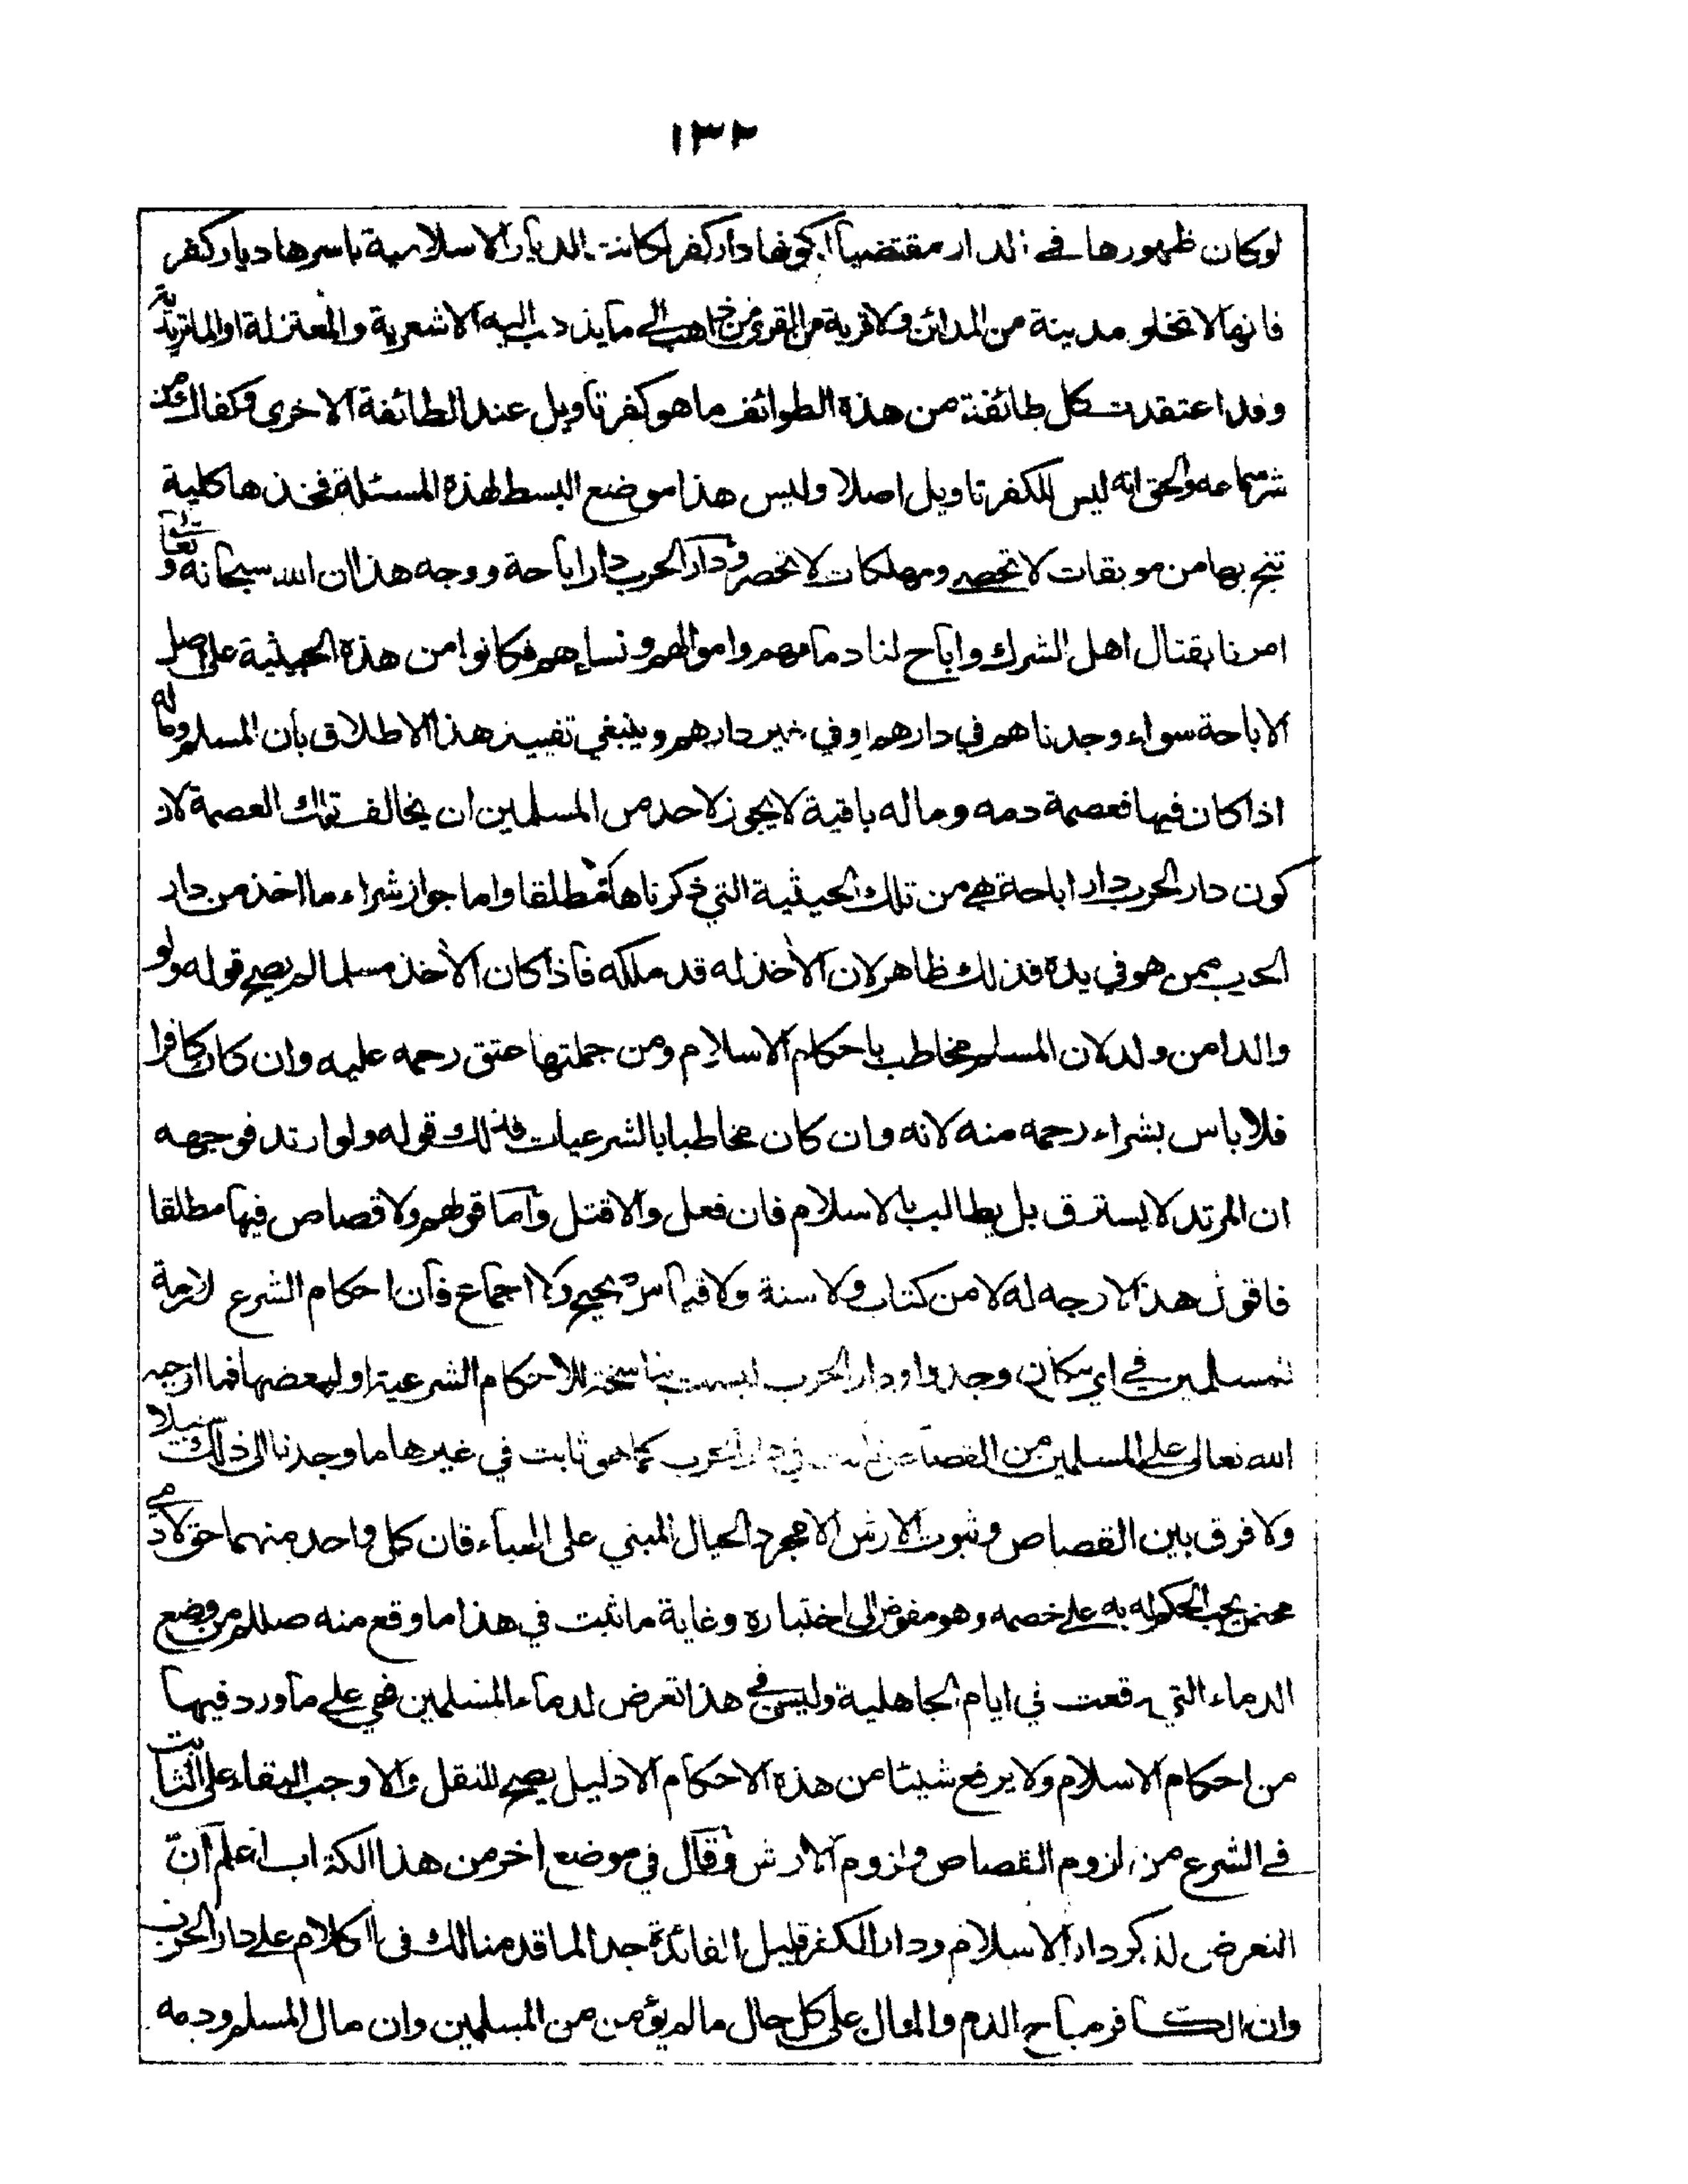 ١٣٢
لو كان ظهورها في الدار مقتضيا لكونها دار كفر لكانت الديار الاسلامية باسرها ديار كفر
فانها لا تخلو مدينة من المدائن ولا قرية من القرى من ذاهب الى ما يذهب اليه الاشعرية والمعتزلة او الماتريدية
وقد اعتقدت كل طائفة من هذه الطوائف ما هو كفر تاويل عند الطائفة الاخرى وكفاك من
شر سماعه والحق انه ليس للكفر تاويل اصلا وليس هذا موضع البسط لهذه المسئلة فخذها كلية
تنج بها من موبقات لا تحصى ومهلكات لا تحصر ودار الحرب دار اباحة ووجه هذا ان الله سبحانه وتعالى
امرنا بقتال اهل الشرك واباح لنا دماءهم واموالهم ونساءهم فكانوا من هذه الحيثية على اصل
الاباحة سواء وجدناهم في دارهم او في غير دارهم وينبغي تقييد هذا الاطلاق بان المسلم وماله
اذا كان فيها فعصمة دمه وماله باقية لا يجوز لاحد من المسلمين ان يخالف تلك العصمة لان
كون دار الحرب دار اباحة هي من تلك الحيثية التي ذكرناها لا مطلقا واما جواز شراء ما اخذ من دار
الحرب ممن هو في يده فذلك ظاهر لان الآخذ له قد ملكه فاذا كان الآخذ مسلما لم يصح قوله ولو
والدا من ولد لان المسلم مخاطب باحكام الاسلام ومن جملتها عتق رحمه عليه وان كان كافرا
فلا باس بشراء رحمه منه لانه وان كان مخاطبا بالشرعيات فذلك قوله ولو ارتد فوجهه
ان المرتد لا يسترق بل يطالب بالاسلام فان فعل والا قتل واما قولهم ولا قصاص فيها مطلقا
فاقول هذا لا وجه له لا من كتاب ولا سنة ولا قياس صحيح ولا اجماع فان احكام الشرع لازمة
للمسلمين في اي مكان وجدوا ودار الحرب ليست بناسخة للاحكام الشرعية او لبعضها فما اوجبه
الله تعالى على المسلمين من القصاص ثابت في دار الحرب كما هو ثابت في غيرها ما وجدنا الى ذلك سبيلا
ولا فرق بين القصاص وثبوت الارش الا مجرد الخيال المبني على الهباء فان كل واحد منهما حق لادمي
محض يجب الحكم له به على خصمه وهو مفوض الى اختياره وغاية ما ثبت في هذا ما وقع منه صللم من وضع
الدماء التي وقعت في ايام الجاهلية وليس في هذا تعرض لدماء المسلمين فهي على ما ورد فيها
من احكام الاسلام ولا يرفع شيئا من هذه الاحكام الا دليل يصح للنقل والا وجب البقاء على الثابت
في الشرع من لزوم القصاص ولزوم الارش وقال في موضع آخر من هذا الكتاب اعلم ان
التعرض لذكر دار الاسلام ودار الكفر قليل الفائدة جدا لما قدمنا لك في الكلام على دار الحرب
وان الكافر مباح الدم والمال على كل حال ما لم يؤمن من المسلمين وان مال المسلم ودمه